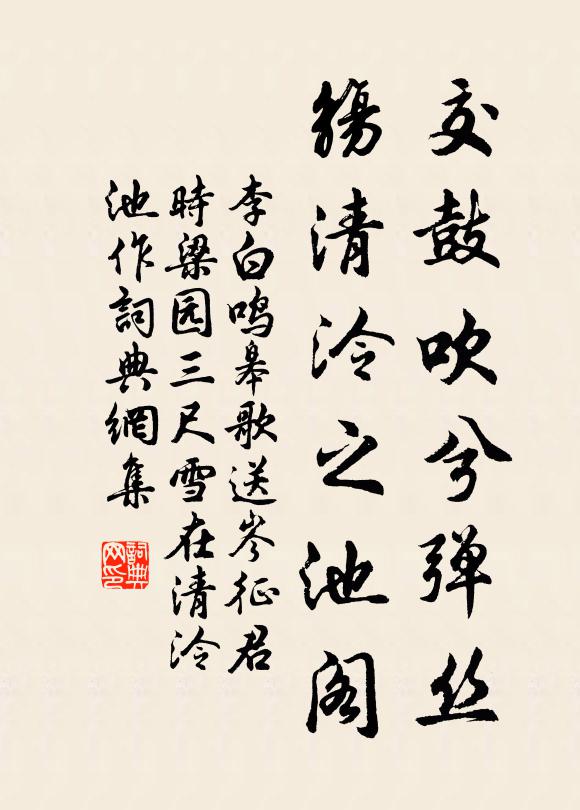 交鼓吹兮弹丝
觞清泠之池阁
李白鸣皋歌送岑征君
時梁园三尺雪在清泠
池作詞典網集
詞典网印